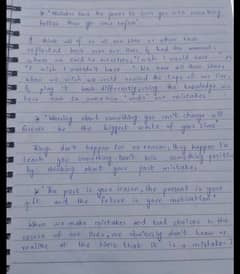 * "Mistakes have the power to turn you into something
better than you were before"
I think all of us at one stage or other have
reflected back over our lives & had the moments
where we said to ourselves, "I wish I would have" or
"I wish I wouldn't have". We have all done
when we wish we could rewind the tape of our lives
& play it back differently, using the knowledge we
have now to somehow "undo" our mistakes.
* "Worrying about something you can't change will
forever be the biggest waste of your time"
Things don't happen for no reason, they happen to
teach you something. Don't lose something positive
by thinking about your past mistakes.
* "The past is your lesson, the present is your
gift and the future is your motivation"
When we make mistakes and bad choices in the
course of our lives, we obviously don't know or
realise at the time that it is a mistake.